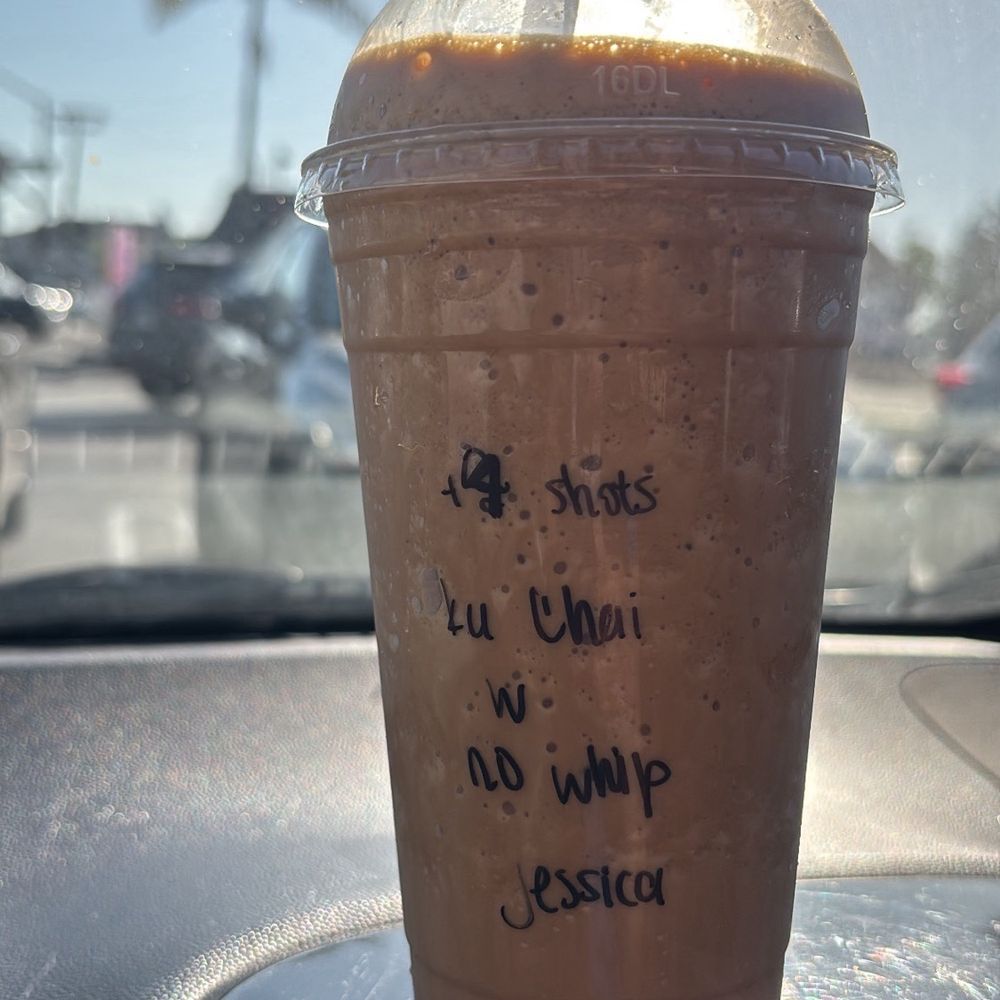 16DL
+4 shots
Chai
W
no whip
Jessica